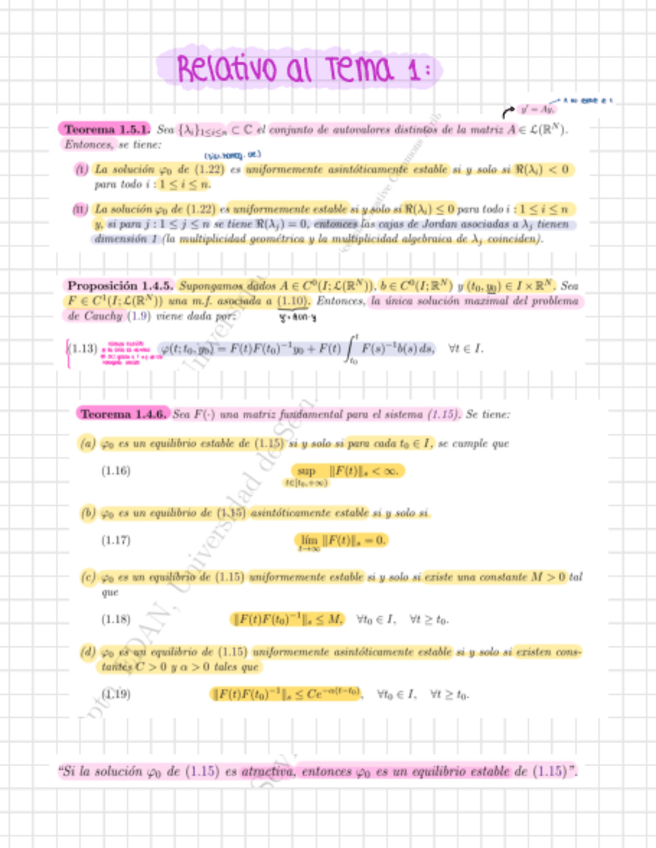 Relativo al Tema 1:
y' = Ay.
Teorema 1.5.1. Sea {λᵢ}₁≤ᵢ≤ₙ ⊂ ℂ el conjunto de autovalores distintos de la matriz A ∈ ℒ(ℝᴺ).
Entonces, se tiene:
(i) La solución φ₀ de (1.22) es uniformemente asintóticamente estable si y solo si ℜ(λᵢ) < 0
para todo i : 1 ≤ i ≤ n.
(ii) La solución φ₀ de (1.22) es uniformemente estable si y solo si ℜ(λᵢ) ≤ 0 para todo i : 1 ≤ i ≤ n
y, si para j : 1 ≤ j ≤ n se tiene ℜ(λⱼ) = 0, entonces las cajas de Jordan asociadas a λⱼ tienen
dimensión 1 (la multiplicidad geométrica y la multiplicidad algebraica de λⱼ coinciden).
Proposición 1.4.5. Supongamos dados A ∈ C⁰(I; ℒ(ℝᴺ)), b ∈ C⁰(I; ℝᴺ) y (t₀, y₀) ∈ I × ℝᴺ. Sea
F ∈ C¹(I; ℒ(ℝᴺ)) una m.f. asociada a (1.10). Entonces, la única solución maximal del problema
de Cauchy (1.9) viene dada por:
(1.13) φ(t; t₀, y₀) = F(t)F(t₀)⁻¹y₀ + F(t) ∫ₜ₀ᵗ F(s)⁻¹b(s) ds, ∀t ∈ I.
Teorema 1.4.6. Sea F(·) una matriz fundamental para el sistema (1.15). Se tiene:
(a) φ₀ es un equilibrio estable de (1.15) si y solo si para cada t₀ ∈ I, se cumple que
(1.16) sup t∈[t₀,+∞) ‖F(t)‖ₛ < ∞.
(b) φ₀ es un equilibrio de (1.15) asintóticamente estable si y solo si
(1.17) lím t→∞ ‖F(t)‖ₛ = 0.
(c) φ₀ es un equilibrio de (1.15) uniformemente estable si y solo si existe una constante M > 0 tal
que
(1.18) ‖F(t)F(t₀)⁻¹‖ₛ ≤ M, ∀t₀ ∈ I, ∀t ≥ t₀.
(d) φ₀ es un equilibrio de (1.15) uniformemente asintóticamente estable si y solo si existen cons-
tantes C > 0 y α > 0 tales que
(1.19) ‖F(t)F(t₀)⁻¹‖ₛ ≤ Ce⁻ᵅ⁽ᵗ⁻ᵗ⁰⁾, ∀t₀ ∈ I, ∀t ≥ t₀.
"Si la solución φ₀ de (1.15) es atractiva, entonces φ₀ es un equilibrio estable de (1.15)".